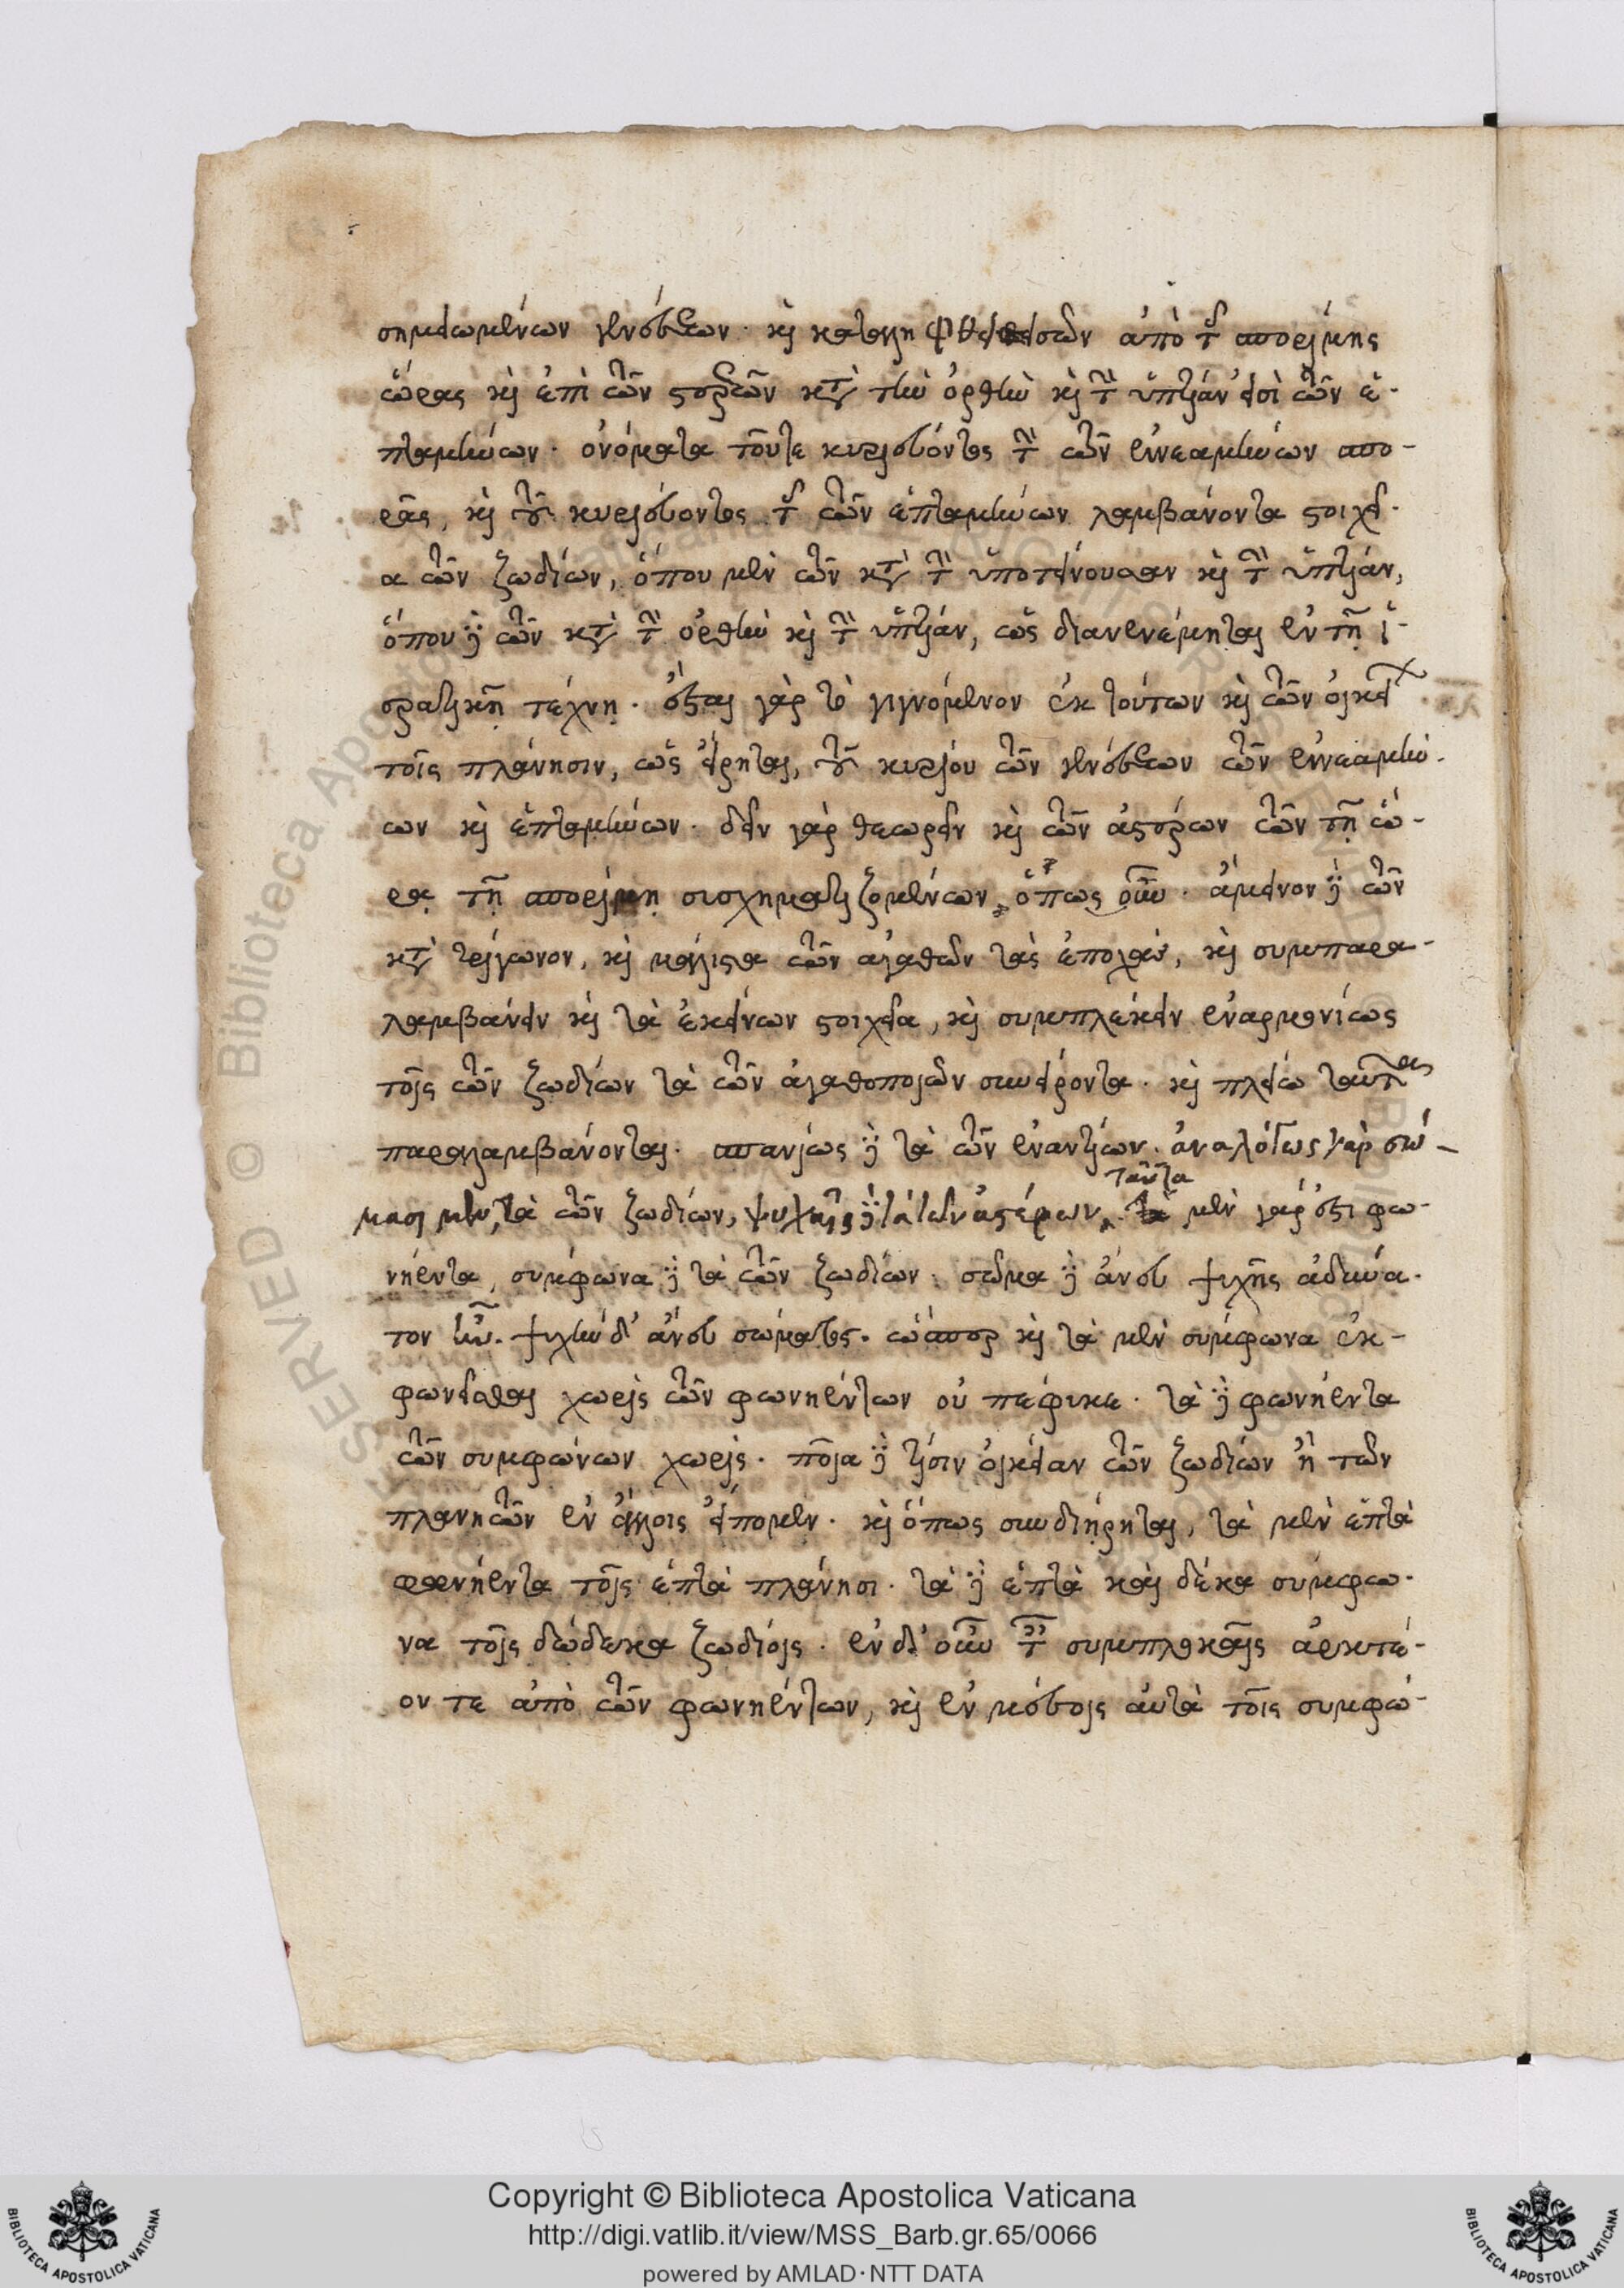 σημειωμένων γενέσεων. καὶ καταλη φθεισῶν ἀπὸ τῆς ἀπορίμης
ὥρας καὶ ἐπὶ τῶν στερεῶν κατὰ τὴν ὀρθὴν καὶ τὴν ὑπτίαν εἰσὶ τῶν ἑ-
πταμήνων. ὀνόματα τοῦτε κυριεύοντος τῆς τῶν ἐννεαμήνων σπο-
ρᾶς, καὶ τοῦ κυριεύοντος τῆς τῶν ἑπταμήνων λαμβάνοντα στοιχεῖ-
α τῶν ζωδίων, ὅπου μὲν τῶν κατὰ τὴν ὑποτείνουσαν καὶ τὴν ὑπτίαν,
ὅπου δὲ τῶν κατὰ τὴν ὀρθὴν καὶ τὴν ὑπτίαν, ὡς διανενέμηται ἐν τῇ ἰ-
ατρικῇ τέχνῃ. ἔσται γὰρ τὸ γιγνόμενον ἐκ τούτων καὶ τῶν οἰκείων
τοῖς πλάνησιν, ὡς εἴρηται, τοῦ κυρίου τῶν γενέσεων τῶν ἐννεαμή-
νων καὶ ἑπταμήνων. δεῖν γὰρ θεωρεῖν καὶ τῶν ἀστέρων τῶν τῇ ὥ-
ρᾳ τῇ σπορίμῃ συσχηματιζομένων, ὅπως οὖν. ἄμεινον δὲ τῶν
κατὰ τρίγωνον, καὶ μάλιστα τῶν ἀγαθῶν τὰς ἐποχὰς, καὶ συμπαρα-
λαμβάνειν καὶ τὰ ἐκείνων στοιχεῖα, καὶ συμπλέκειν ἐναρμονίως
τοῖς τῶν ζωδίων τὰ τῶν ἀγαθοποιῶν συνείροντα. καὶ πλείω ταῦτα
παραλαμβάνονται. σπανίως δὲ τὰ τῶν ἐναντίων. ἀναλόγως γὰρ σώ-
μασι μὲν, τὰ τῶν ζωδίων, ψυχαῖς δὲ τὰ τῶν ἀστέρων, ταῦτα μὲν γάρ ἐστι φω-
νήεντα, σύμφωνα δὲ τὰ τῶν ζωδίων. σῶμα δὲ ἄνευ ψυχῆς ἀδύνα-
τον ζῆν. ψυχὴν δ' ἄνευ σώματος. ὥσπερ καὶ τὰ μὲν σύμφωνα ἐκ-
φωνεῖσθαι χωρὶς τῶν φωνηέντων οὐ πέφυκε. τὰ δὲ φωνήεντα
τῶν συμφώνων χωρίς. ποῖα δὲ τίσιν οἰκεῖαν τῶν ζωδίων ἢ τῶν
πλανητῶν ἐν ἄλλοις εἴπομεν. καὶ ὅπως συνδιῄρηται, τὰ μὲν ἑπτὰ
φωνήεντα τοῖς ἑπτὰ πλάνησι. τὰ δὲ ἑπτὰ καὶ δέκα σύμφω-
να τοῖς δώδεκα ζωδίοις. ἐν δ' οὖν ταῖς συμπλοκαῖς ἀρκτέ-
ον τε ἀπὸ τῶν φωνηέντων, καὶ ἐν μέσοις αὐτὰ τοῖς συμφώ-
Copyright © Biblioteca Apostolica Vaticana
http://digi.vatlib.it/view/MSS_Barb.gr.65/0066
powered by AMLAD·NTT DATA